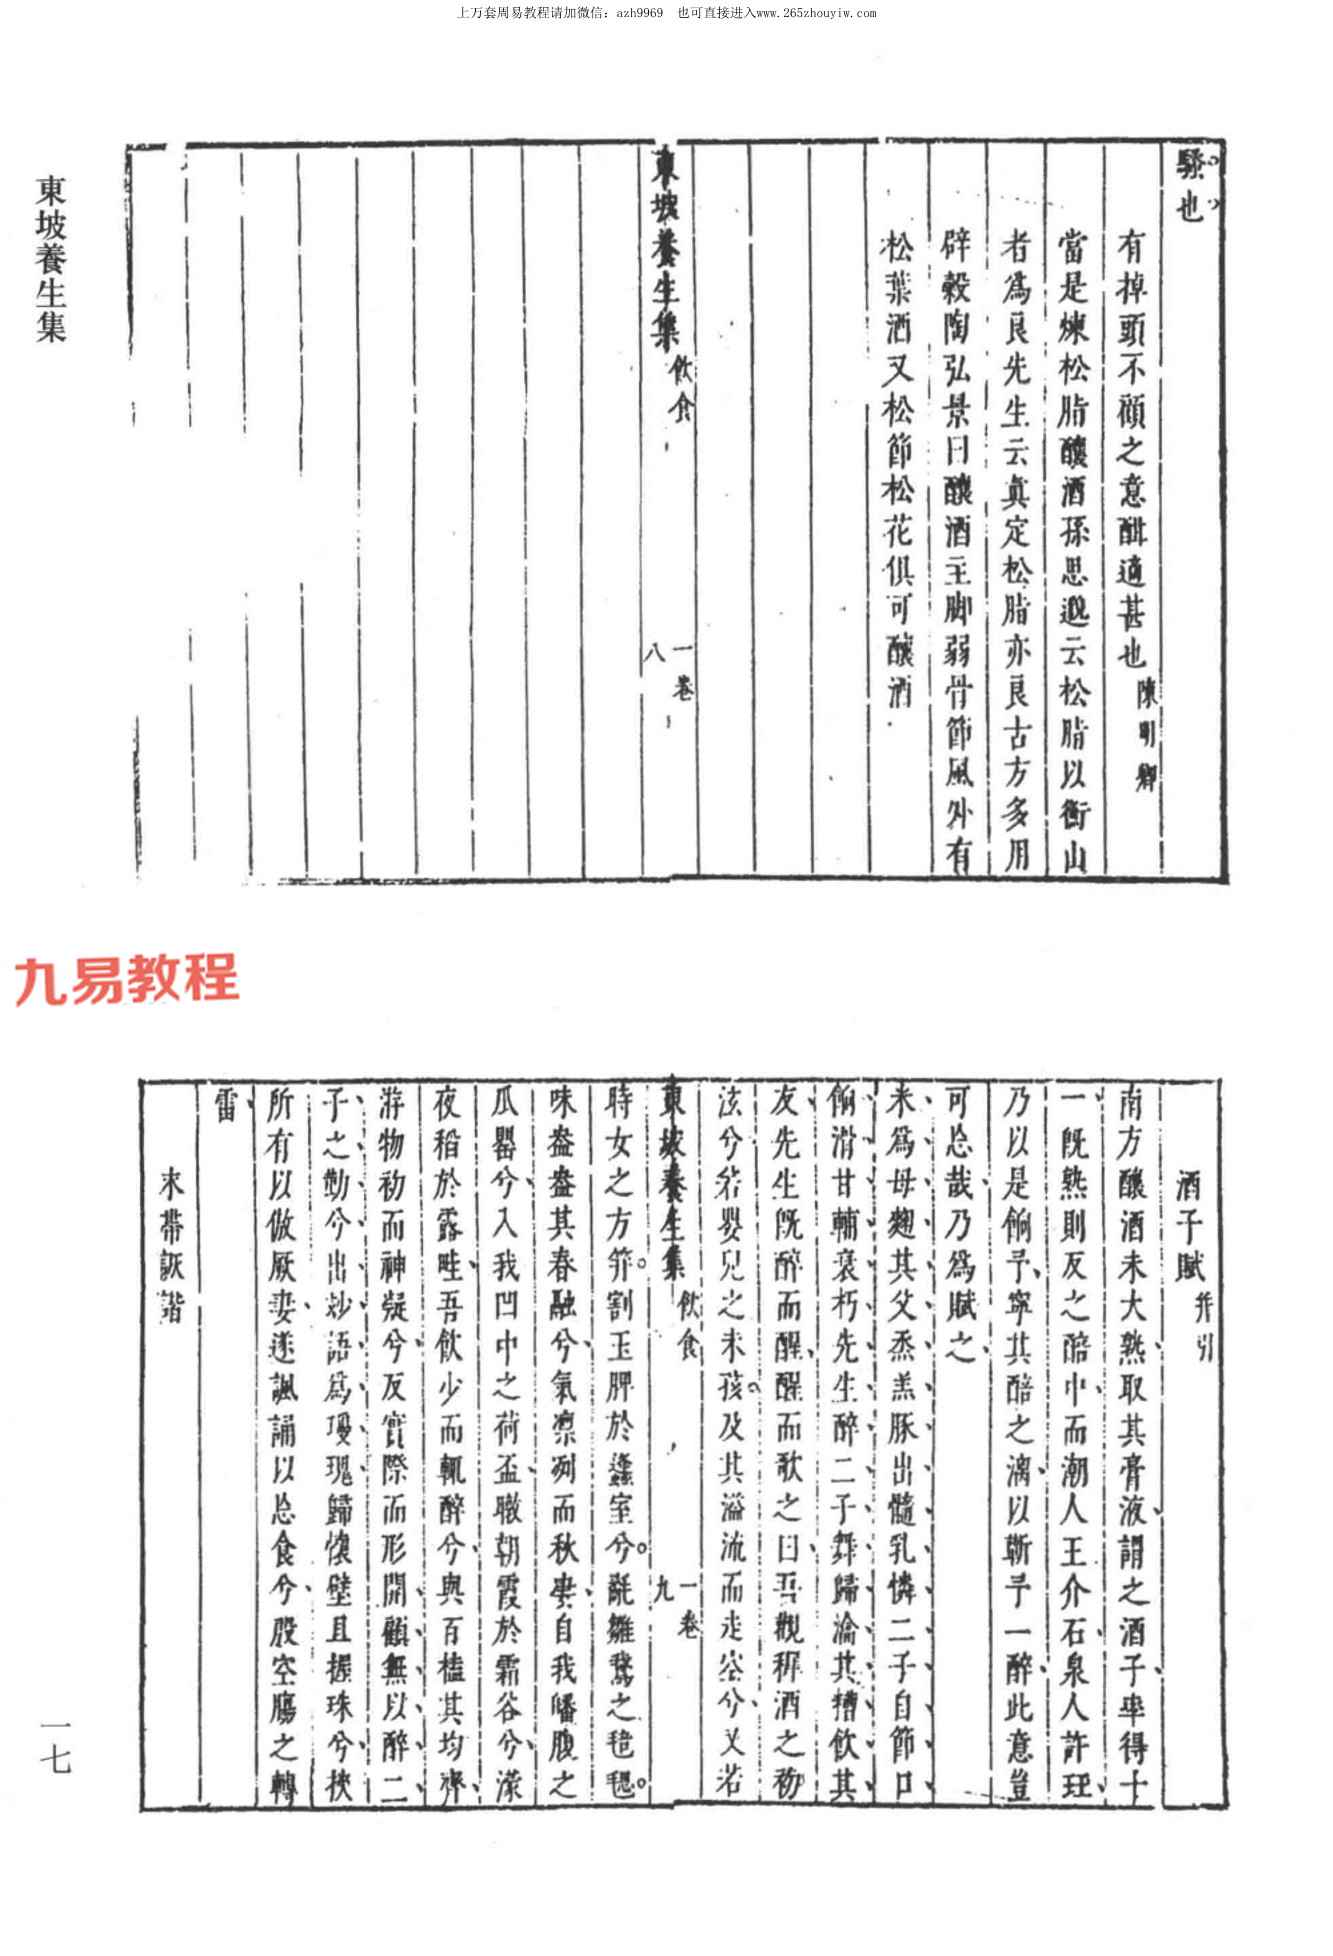 上万套周易教程请加微信：azh9969　也可直接进入www.265zhouyiw.com
東坡養生集
騷也
有掉頭不顧之意酣適甚也陳明卿
當是煉松脂釀酒孫思邈云松脂以衡山
者為良先生云真定松脂亦良古方多用
辟穀陶弘景曰釀酒主脚弱骨節風外有
松葉酒又松節松花俱可釀酒
東坡養生集 飲食 一卷 八
九易教程
酒子賦 并引
南方釀酒未大熟取其膏液謂之酒子率得十
一既熟則反之醅中而潮人王介石泉人許珏
乃以是餉予寧其醅之漓以蘄予一醉此意豈
可忘哉乃為賦之
米為母麴其父烝羔豚出髓乳憐二子自節口
餉滑甘輔衰朽先生醉二子舞歸瀹其糟飲其
友先生既醉而醒醒而歌之曰吾觀稚酒之初
泫兮若嬰兒之未孩及其溢流而走空兮又若
東坡養生集 飲食 一卷 九
時女之方笄割玉脾於蠭室兮氄雛鵞之毰毸
味盎盎其春融兮氣凛冽而秋凄自我皤腹之
瓜罌兮入我凹中之荷盃暾朝霞於霜谷兮濛
夜稻於露畦吾飲少而輒醉兮與百榼其均齊
游物初而神凝兮反實際而形開顧無以醉二
子之勤兮出妙語為瓊瑰歸懷璧且握珠兮挾
所有以傲厥妻遂諷誦以忘食兮殷空腸之轉
雷
末帶詼諧
一七